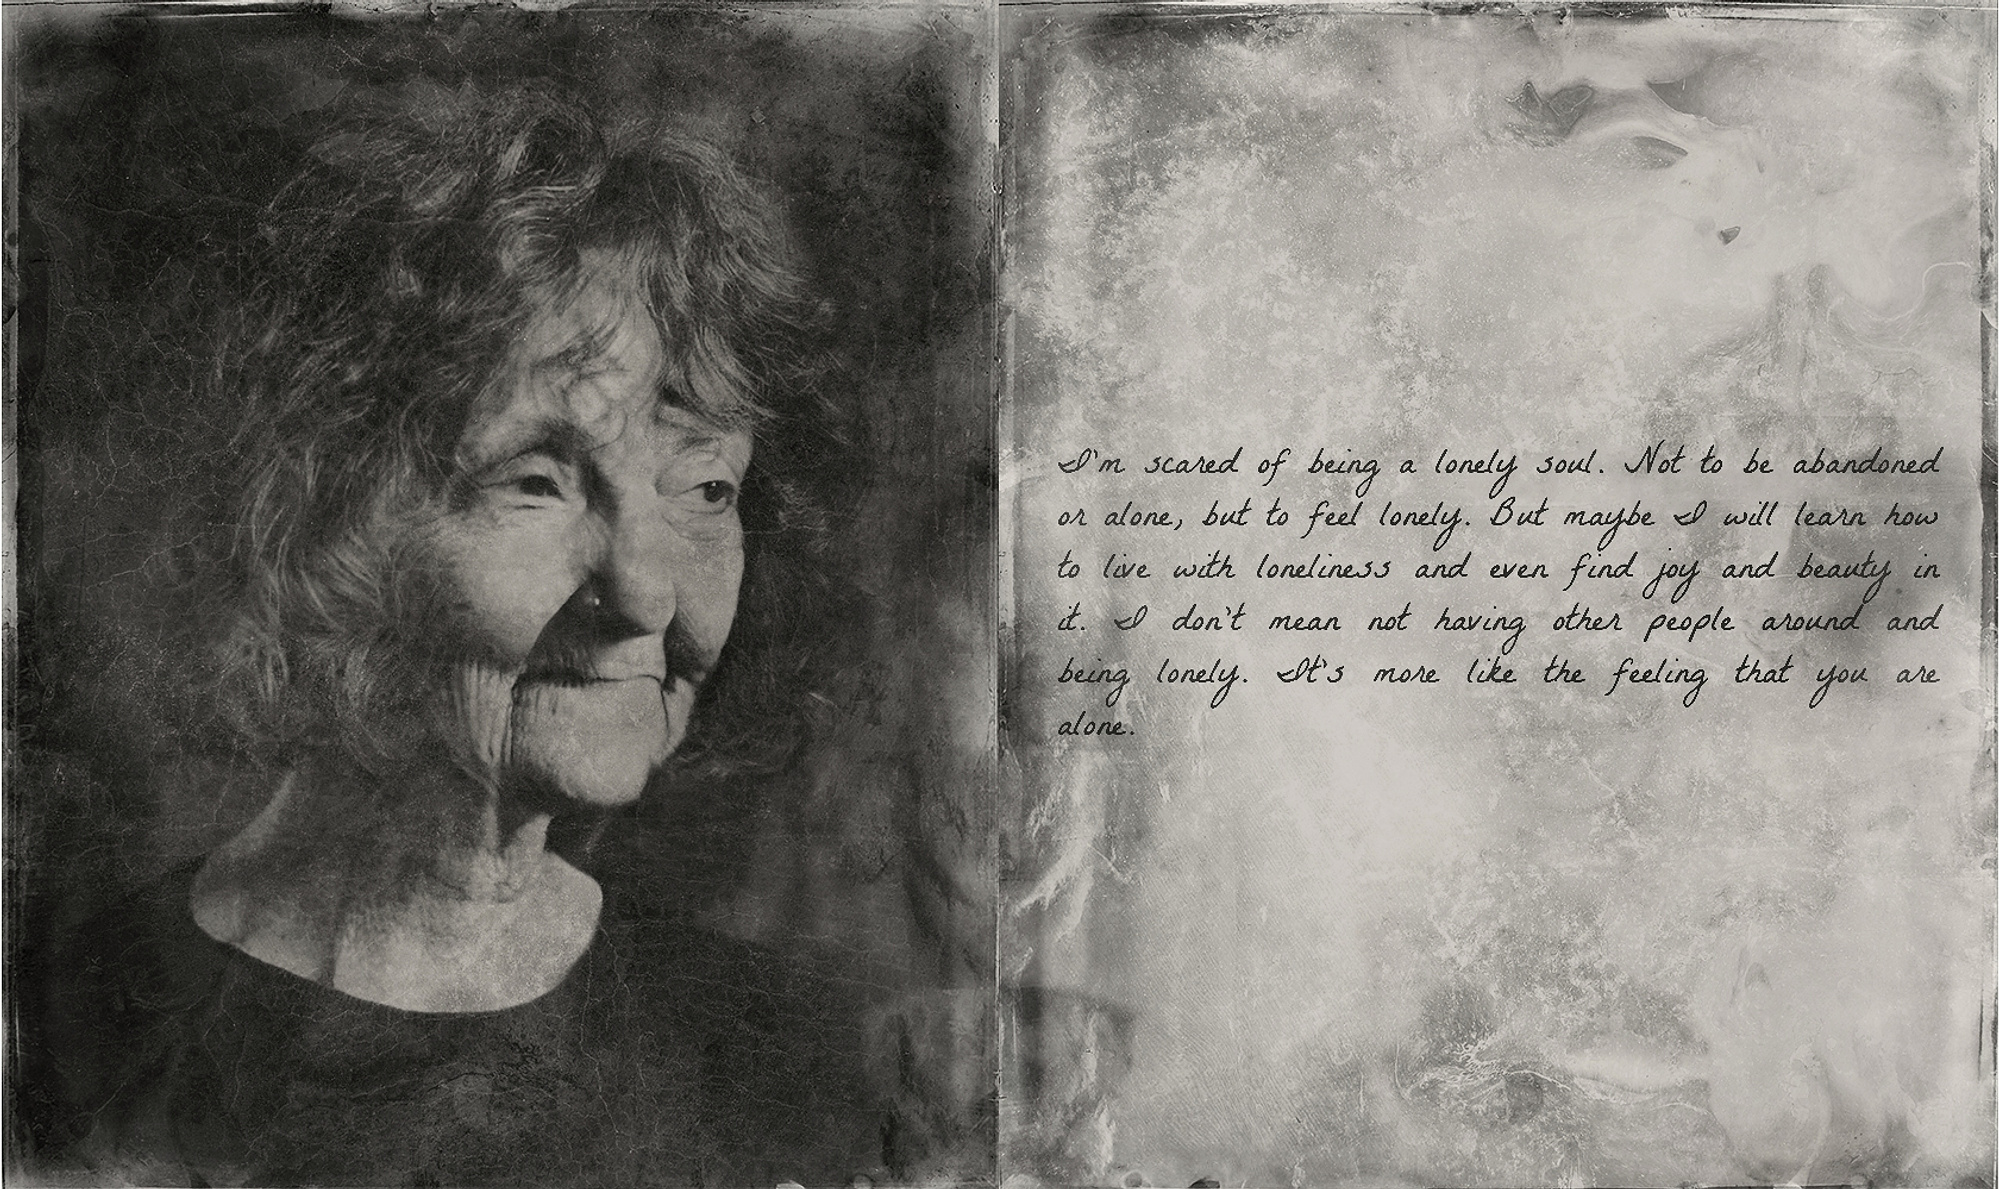 I'm scared of being a lonely soul. Not to be abandoned
or alone, but to feel lonely. But maybe I will learn how
to live with loneliness and even find joy and beauty in
it. I don't mean not having other people around and
being lonely. It's more like the feeling that you are
alone.